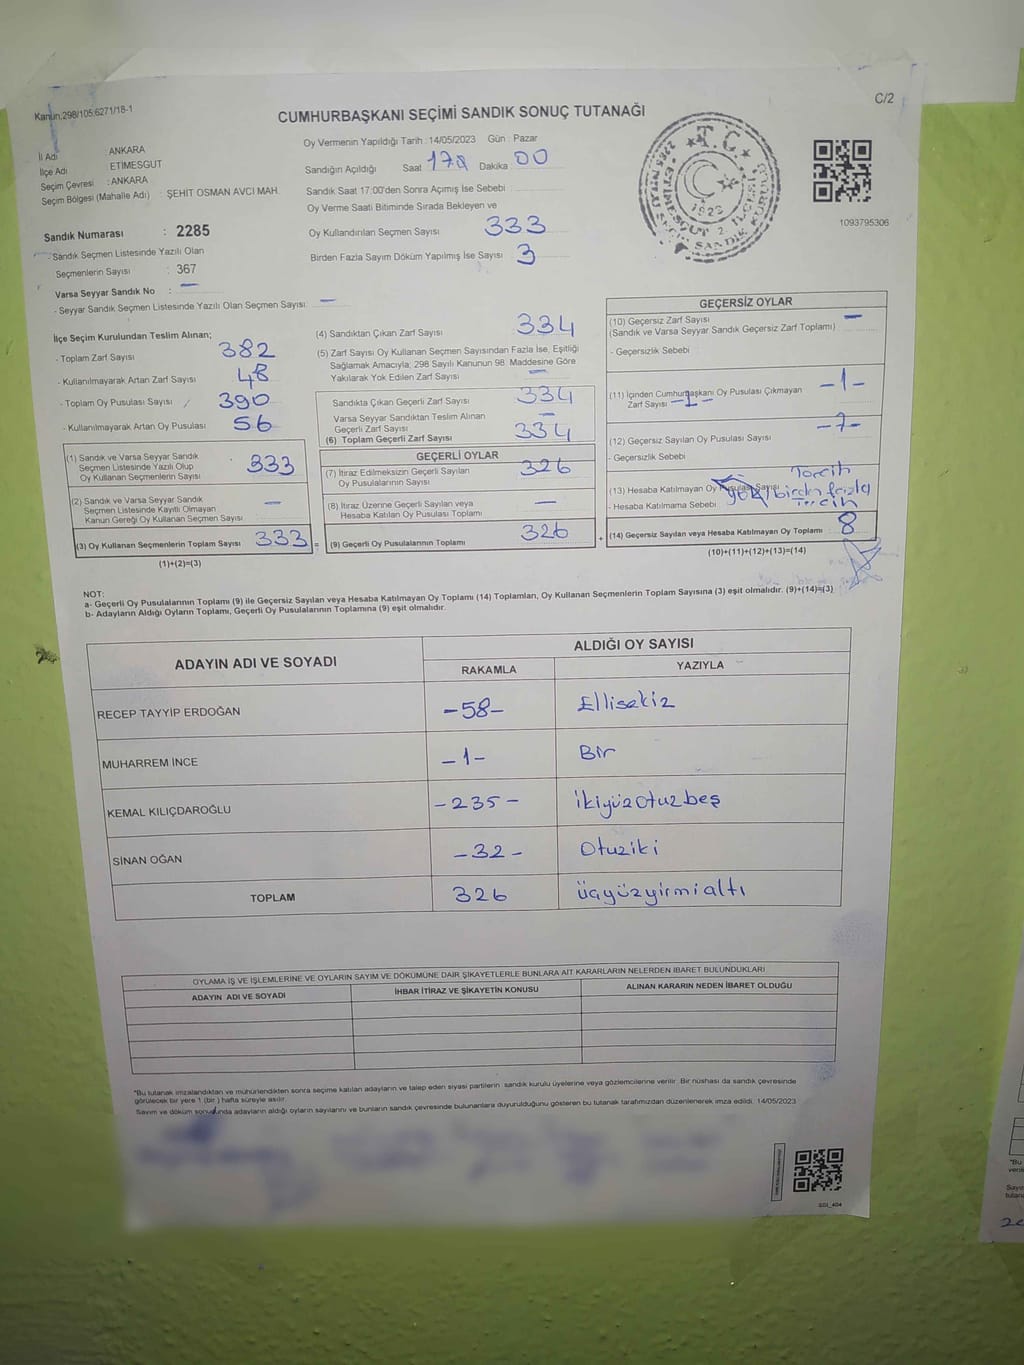 Kanun:298/105:6271/18-1
C/2
CUMHURBAŞKANI SEÇİMİ SANDIK SONUÇ TUTANAĞI
İl Adı : ANKARA
İlçe Adı : ETİMESGUT
Seçim Çevresi : ANKARA
Seçim Bölgesi (Mahalle Adı) : ŞEHİT OSMAN AVCI MAH.
Sandık Numarası : 2285
Sandık Seçmen Listesinde Yazılı Olan
Seçmenlerin Sayısı : 367
Varsa Seyyar Sandık No : —
- Seyyar Sandık Seçmen Listesinde Yazılı Olan Seçmen Sayısı: —
Oy Vermenin Yapıldığı Tarih : 14/05/2023 Gün : Pazar
Sandığın Açıldığı Saat Dakika 00
Sandık Saat 17:00'den Sonra Açımış İse Sebebi
Oy Verme Saati Bitiminde Sırada Bekleyen ve
Oy Kullandırılan Seçmen Sayısı 333
Birden Fazla Sayım Döküm Yapılmış İse Sayısı 3
T.C.
1923
1093795306
İlçe Seçim Kurulundan Teslim Alınan;
- Toplam Zarf Sayısı 382
- Kullanılmayarak Artan Zarf Sayısı 48
- Toplam Oy Pusulası Sayısı 390
- Kullanılmayarak Artan Oy Pusulası 56
(1) Sandık ve Varsa Seyyar Sandık
Seçmen Listesinde Yazılı Olup
Oy Kullanan Seçmenlerin Sayısı : 333
(2) Sandık ve Varsa Seyyar Sandık
Seçmen Listesinde Kayıtlı Olmayan
Kanun Gereği Oy Kullanan Seçmen Sayısı —
(3) Oy Kullanan Seçmenlerin Toplam Sayısı 333 =
(1)+(2)=(3)
(4) Sandıktan Çıkan Zarf Sayısı 334
(5) Zarf Sayısı Oy Kullanan Seçmen Sayısından Fazla İse, Eşitliği
Sağlamak Amacıyla; 298 Sayılı Kanunun 98. Maddesine Göre
Yakılarak Yok Edilen Zarf Sayısı —
Sandıkta Çıkan Geçerli Zarf Sayısı 334
Varsa Seyyar Sandıktan Teslim Alınan
Geçerli Zarf Sayısı —
(6) Toplam Geçerli Zarf Sayısı 334
GEÇERLİ OYLAR
(7) İtiraz Edilmeksizin Geçerli Sayılan
Oy Pusulasının Sayısı 326
(8) İtiraz Üzerine Geçerli Sayılan veya
Hesaba Katılan Oy Pusulası Toplamı —
(9) Geçerli Oy Pusulalarının Toplamı 326 +
GEÇERSİZ OYLAR
(10) Geçersiz Zarf Sayısı —
(Sandık ve Varsa Seyyar Sandık Geçersiz Zarf Toplamı)
- Geçersizlik Sebebi
(11) İçinden Cumhurbaşkanı Oy Pusulası Çıkmayan -1-
Zarf Sayısı -1-
(12) Geçersiz Sayılan Oy Pusulası Sayısı -7-
- Geçersizlik Sebebi
(13) Hesaba Katılmayan Oy Pusulası Sayısı
- Hesaba Katılmama Sebebi birden fazla
(14) Geçersiz Sayılan veya Hesaba Katılmayan Oy Toplamı : 8
(10)+(11)+(12)+(13)=(14)
NOT:
a- Geçerli Oy Pusulalarının Toplamı (9) ile Geçersiz Sayılan veya Hesaba Katılmayan Oy Toplamı (14) Toplamları, Oy Kullanan Seçmenlerin Toplam Sayısına (3) eşit olmalıdır. (9)+(14)=(3)
b- Adayların Aldığı Oyların Toplamı, Geçerli Oy Pusulalarının Toplamına (9) eşit olmalıdır.
ADAYIN ADI VE SOYADI
ALDIĞI OY SAYISI
RAKAMLA YAZIYLA
RECEP TAYYİP ERDOĞAN -58- Ellisekiz
MUHARREM İNCE -1- Bir
KEMAL KILIÇDAROĞLU -235- ikiyüzotuzbeş
SİNAN OĞAN -32- Otuziki
TOPLAM 326 üçyüzyirmialtı
OYLAMA İŞ VE İŞLEMLERİNE VE OYLARIN SAYIM VE DÖKÜMÜNE DAİR ŞİKAYETLERLE BUNLARA AİT KARARLARIN NELERDEN İBARET BULUNDUKLARI
ADAYIN ADI VE SOYADI İHBAR İTİRAZ VE ŞİKAYETİN KONUSU ALINAN KARARIN NEDEN İBARET OLDUĞU
*Bu tutanak imzalandıktan ve mühürlendikten sonra seçime katılan adayların ve talep eden siyasi partilerin sandık kurulu üyelerine veya gözlemcilerine verilir. Bir nüshası da sandık çevresinde
görülecek bir yere 1 (bir) hafta süreyle asılır.
Sayım ve döküm sonucunda adayların aldığı oyların sayılarını ve bunların sandık çevresinde bulunanlara duyurulduğunu gösteren bu tutanak tarafımızdan düzenlenerek imza edildi. 14/05/2023